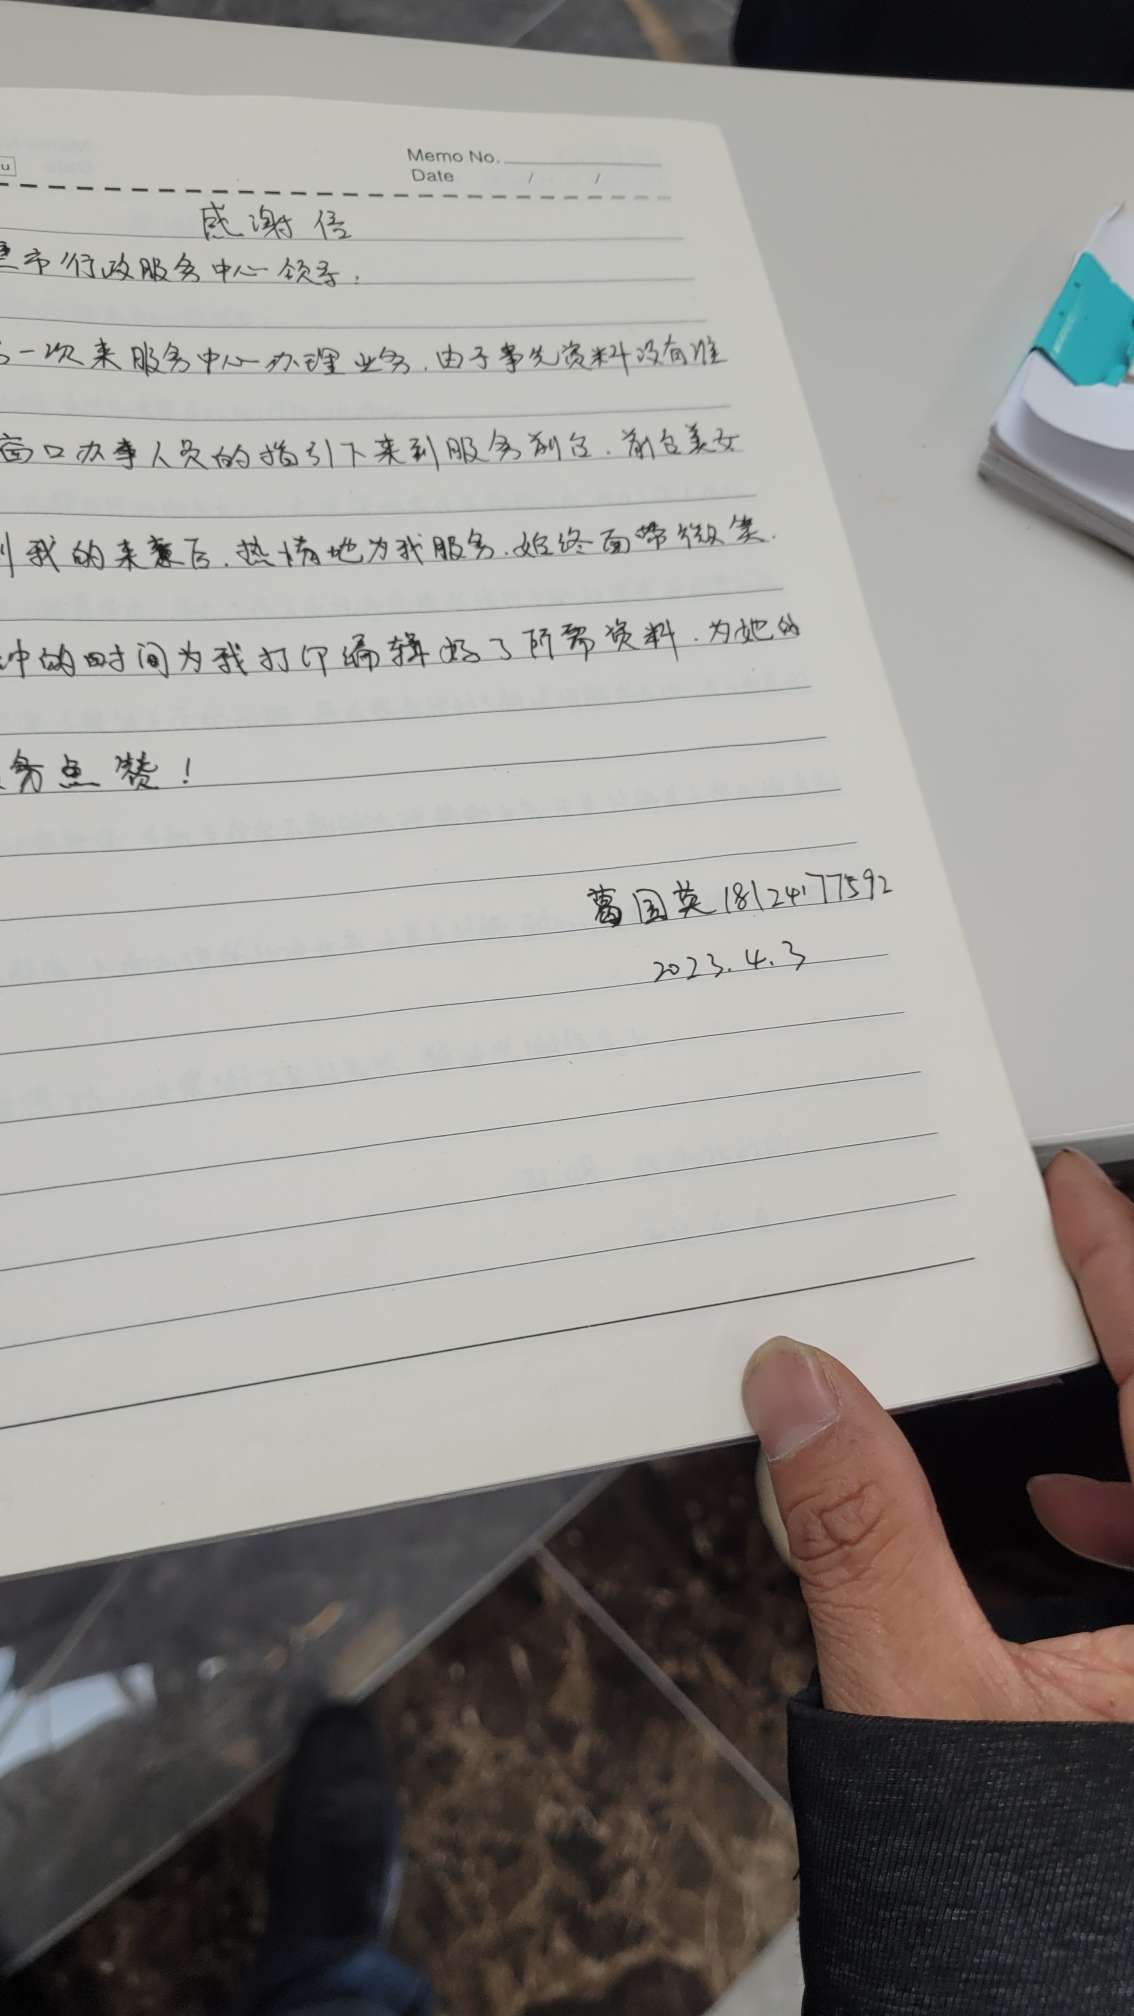 Memo No.
Date / /
感谢信
市行政服务中心领导:
一次来服务中心办理业务,由于事先资料没有准
窗口办事人员的指引下来到服务前台,前台美女
到我的来意后,热情地为我服务,始终面带微笑,
中的时间为我打印编辑好了所需资料,为她的
务点赞!
葛国英 18124177592
2023.4.3